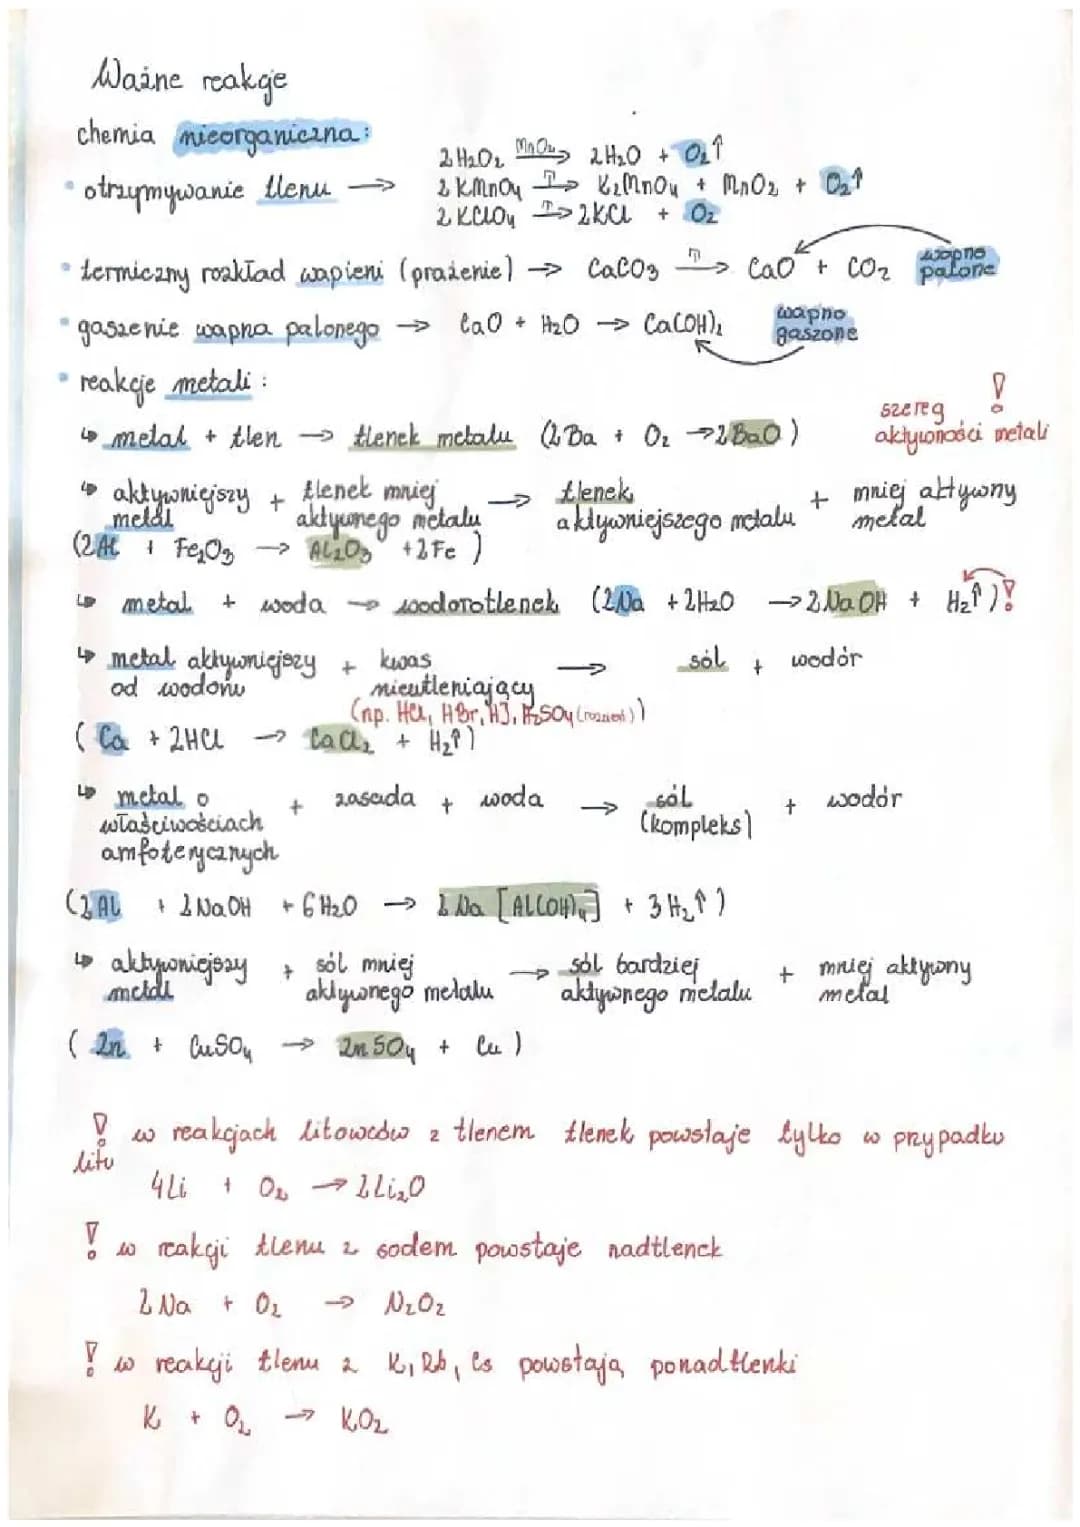 Ważne reakcje
chemia nieorganiczna:
• otrzymywanie tlenu → 2H₂O₂ MnO₂→ 2H₂O + O₂↑
2KMnO₄ T→ K₂MnO₄ + MnO₂ + O₂↑
2KClO₄ T→ 2KCl + O₂
• termiczny rozkład wapieni (prażenie) → CaCO₃ T→ CaO + CO₂ wapno palone
• gaszenie wapna palonego → CaO + H₂O → Ca(OH)₂ wapno gaszone
• reakcje metali:
! szereg aktywności metali
↳ metal + tlen → tlenek metalu (2Ba + O₂ → 2BaO)
↳ aktywniejszy metal + tlenek mniej aktywnego metalu → tlenek aktywniejszego metalu + mniej aktywny metal
(2Al + Fe₂O₃ → Al₂O₃ + 2Fe)
↳ metal + woda → wodorotlenek (2Na + 2H₂O → 2NaOH + H₂↑)!
↳ metal aktywniejszy od wodoru + kwas nieutleniający → sól + wodór
(np. HCl, HBr, HJ, H₂SO₄ (rozcień))
(Ca + 2HCl → CaCl₂ + H₂↑)
↳ metal o właściwościach amfoterycznych + zasada + woda → sól (kompleks) + wodór
(2Al + 2NaOH + 6H₂O → 2Na[Al(OH)₄] + 3H₂↑)
↳ aktywniejszy metal + sól mniej aktywnego metalu → sól bardziej aktywnego metalu + mniej aktywny metal
(Zn + CuSO₄ → ZnSO₄ + Cu)
! w reakcjach litowców z tlenem tlenek powstaje tylko w przypadku
litu
4Li + O₂ → 2Li₂O
! w reakcji tlenu z sodem powstaje nadtlenek
2Na + O₂ → N₂O₂
! w reakcji tlenu z K, Rb, Cs powstają ponadtlenki
K + O₂ → KO₂